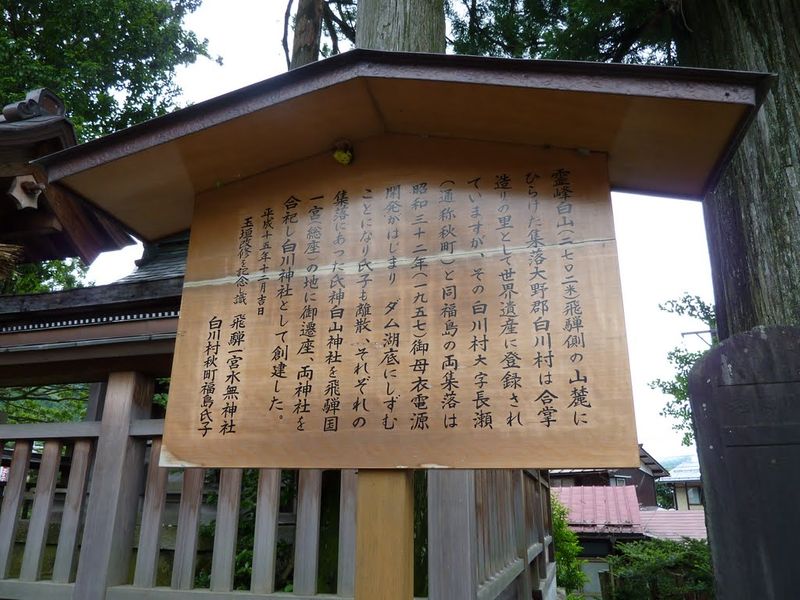 霊峰白山（二七〇二米）飛騨側の山麓に
ひらけた集落大野郡白川村は合掌
造りの里として世界遺産に登録され
ていますが、その白川村大字長瀬
（通称秋町）と同福島の両集落は
昭和三十二年（一九五七）御母衣電源
開発がはじまり ダム湖底にしずむ
ことになり氏子も離散、それぞれの
集落にあった氏神白山神社を飛騨国
一宮（総座）の地に御遷座、両神社を
合祀し白川神社として創建した。
平成十五年十二月吉日
玉垣改修を記念し識 飛騨一宮水無神社
白川村秋町福島氏子